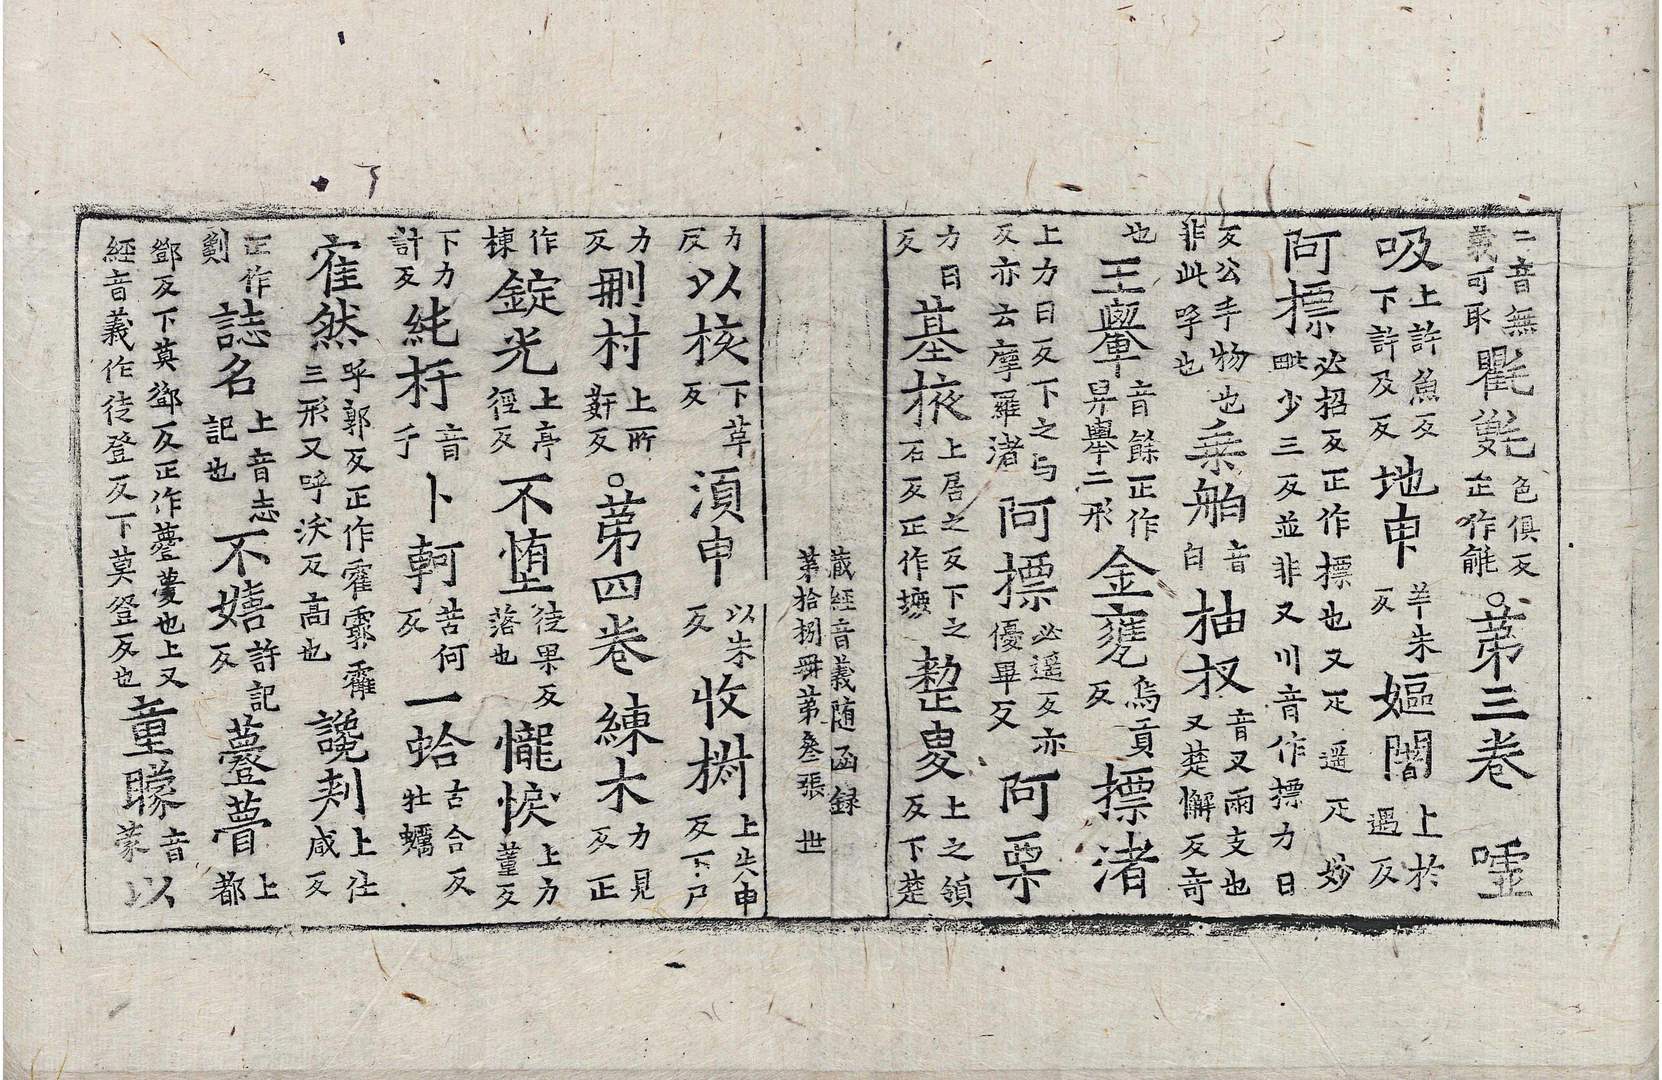 二音無義可取氍毹色俱反正作㲣○苐三卷 唖
吸上許魚反下許及反地䏚羊朱反嫗闇上於遇反
阿摽必招反正作摽也又疋遥疋妙毗少三反並非又川音作摽力日
反公手物也非此呼也乗舶音白抽扠音叉兩支也又楚懈反竒
也王轝音餘正作轝二形金甕烏貢反摽渚
上力日反下之与反亦云摩羅渚阿摽必遥反亦優畢反阿栗
力日反墓掖上居之反下之石反正作墌整㕜上之領反下楚
藏經音義随函録 苐拾捌冊苐叄張 世
力反以核下革反湏申以朱反收𣗳上失申反下戸
力反刪村上所姧反○苐四卷練木力見反正
作楝錠光上亭徑反不堕徒果反落也儱悷上力董反
下力計反純杅音于卜軻苦何反一蛤古合反牡蠣
寉然呼郭反正作霍靃霩三形又呼沃反高也讒刾上仕咸反
正作㓨誌名上音志記也不嬉許記反薹瞢上都
鄧反下莫鄧反正作薹夢也上又經音義作徒登反下莫登反反也童矇音蒙以